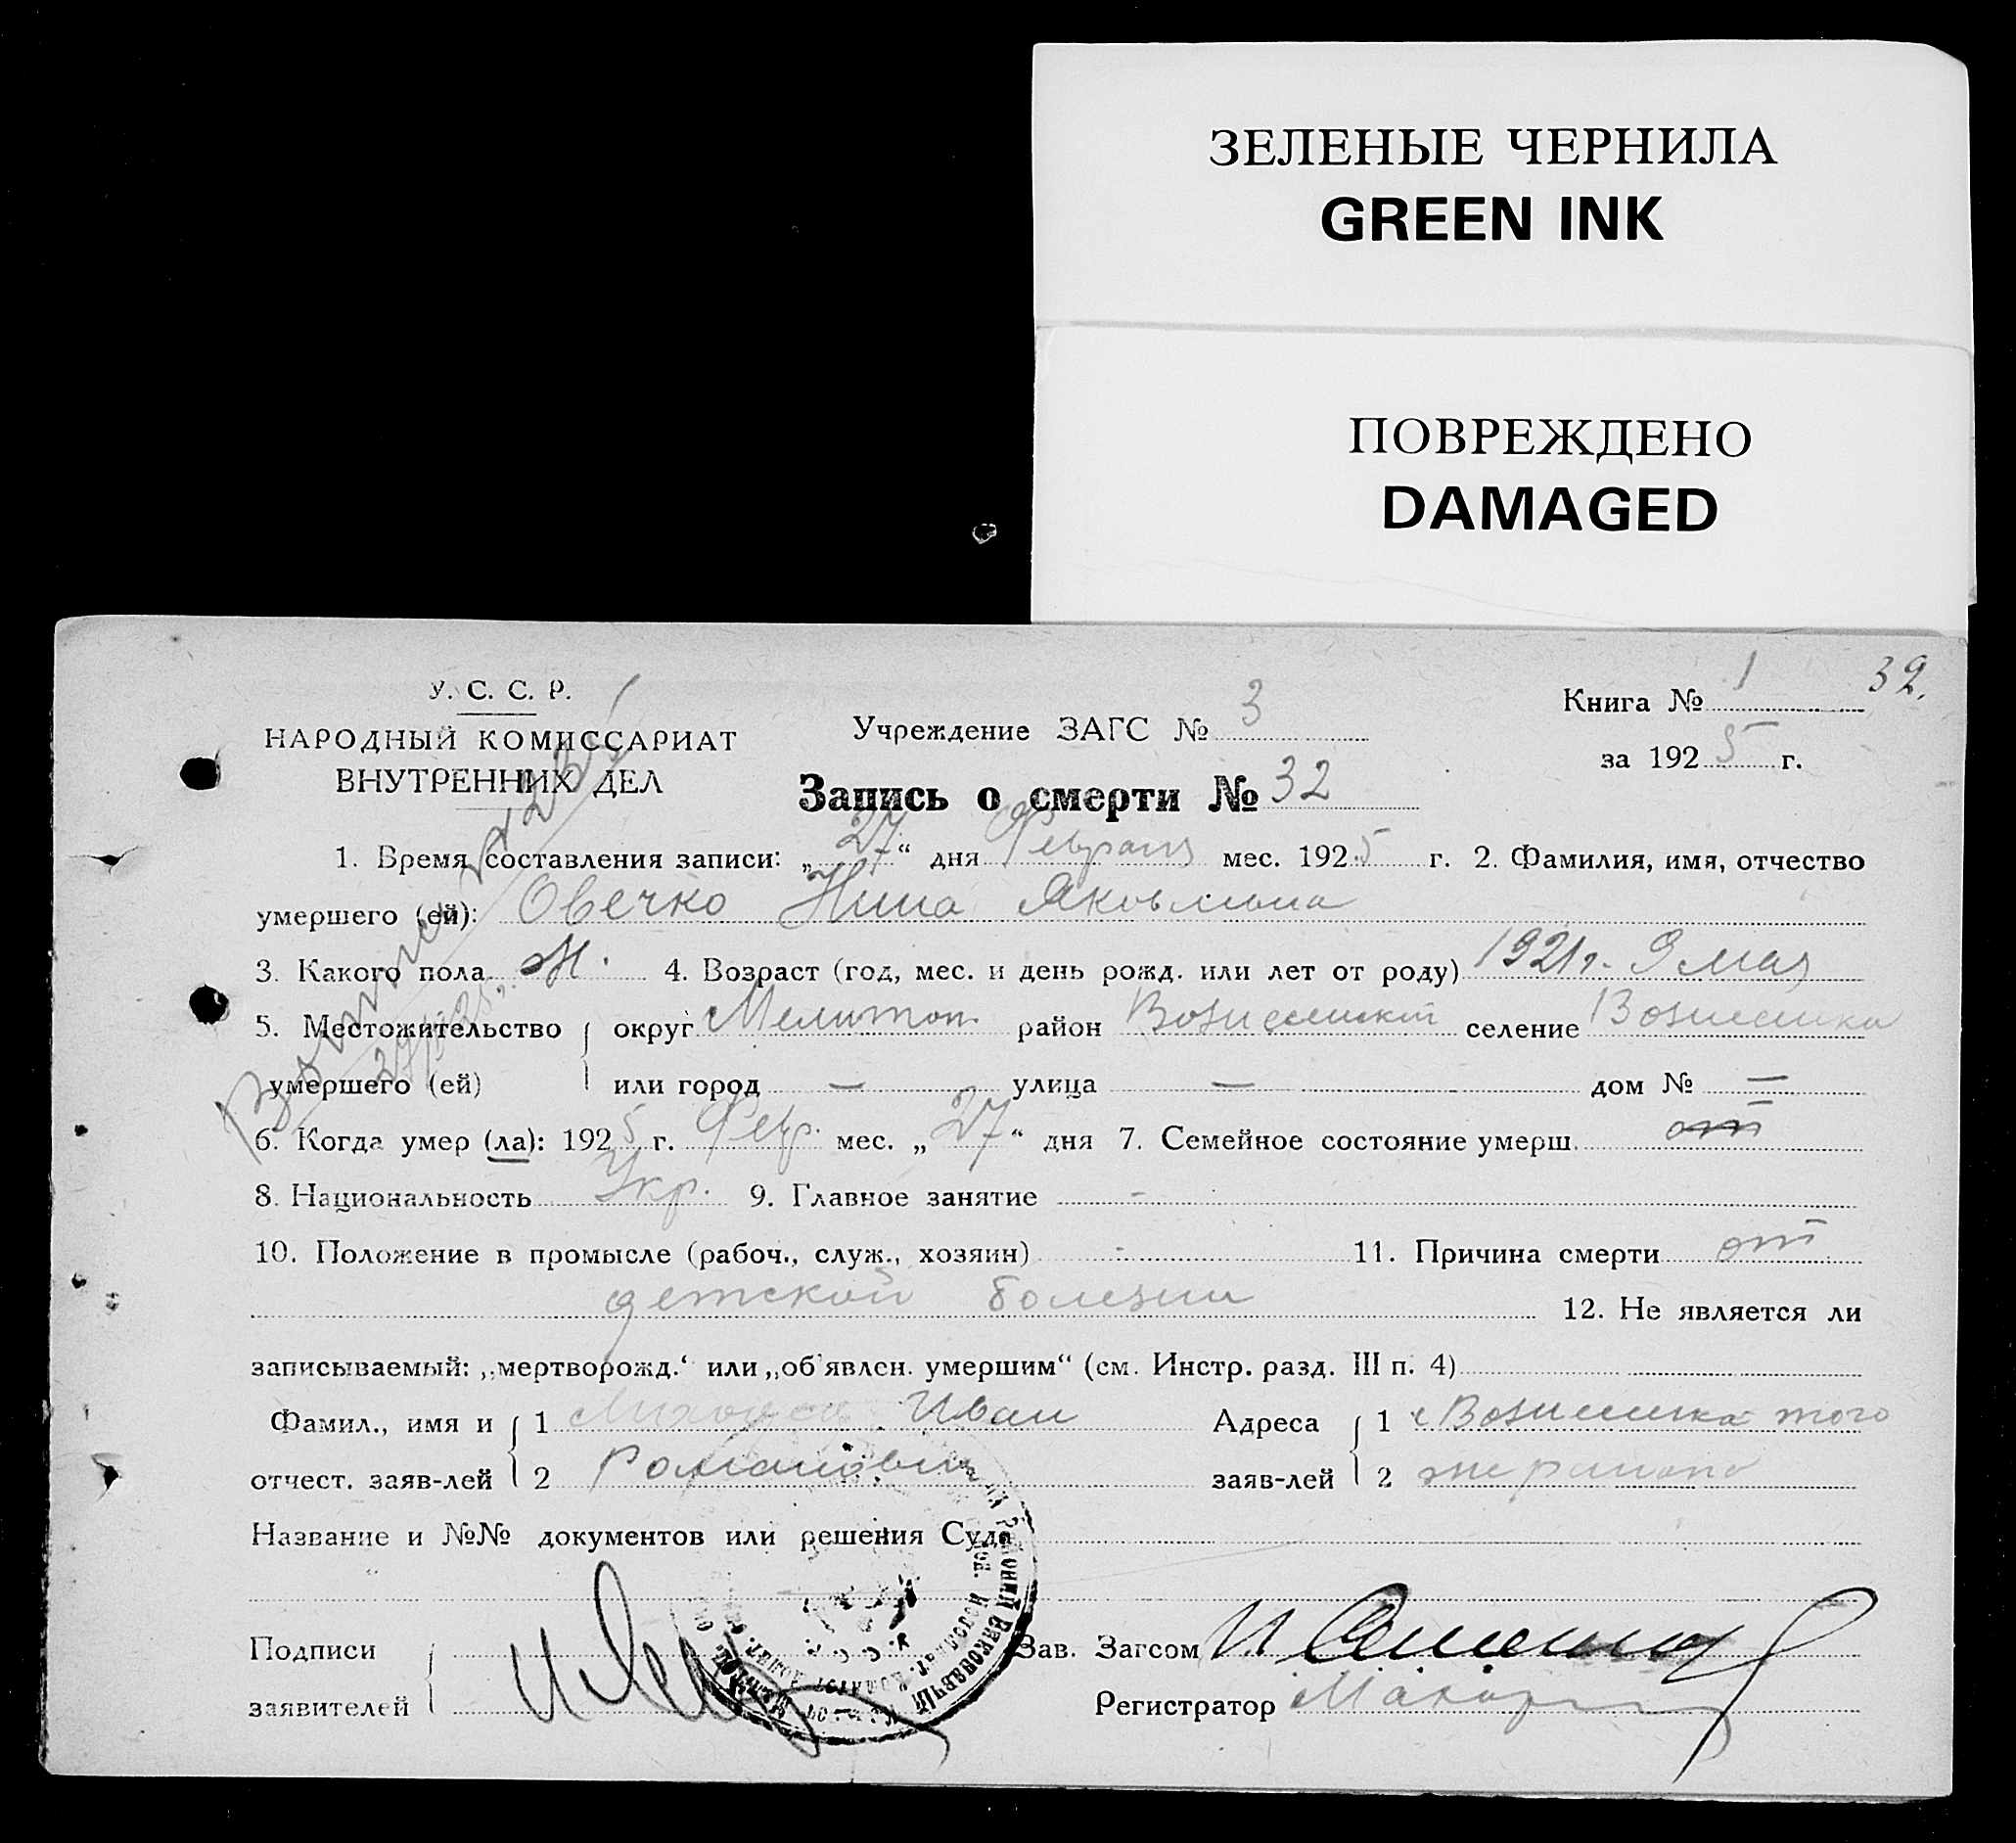 ЗЕЛЕНЫЕ ЧЕРНИЛА
GREEN INK
ПОВРЕЖДЕНО
DAMAGED
У. С. С. Р.
НАРОДНЫЙ КОМИССАРИАТ
ВНУТРЕННИХ ДЕЛ
Учреждение ЗАГС № 3
Книга № 1 32.
за 1925 г.
Запись о смерти № 32
1. Время составления записи: „27“ дня Февраля мес. 1925 г. 2. Фамилия, имя, отчество
умершего (ей): Овечко Нина Яковлевна
3. Какого пола ж. 4. Возраст (год, мес. и день рожд. или лет от роду) 1921 г. 9 мая
5. Местожительство округ Мелитоп. район Вознесенский селение Вознесенка
умершего (ей) или город — улица — дом № —
6. Когда умер (ла): 1925 г. Февр. мес. „27“ дня 7. Семейное состояние умерш.
8. Национальность Укр. 9. Главное занятие -
10. Положение в промысле (рабоч., служ., хозяин) - 11. Причина смерти от
детской болезни 12. Не является ли
записываемый: „мертворожд.“ или „об'явлен. умершим“ (см. Инстр. разд. III п. 4)
Фамил., имя и 1 Иван Адреса 1 с Вознесенка того
отчест. заяв-лей 2 Романович заяв-лей 2 же района
Название и №№ документов или решения Суда
Подписи Зав. Загсом
заявителей Регистратор